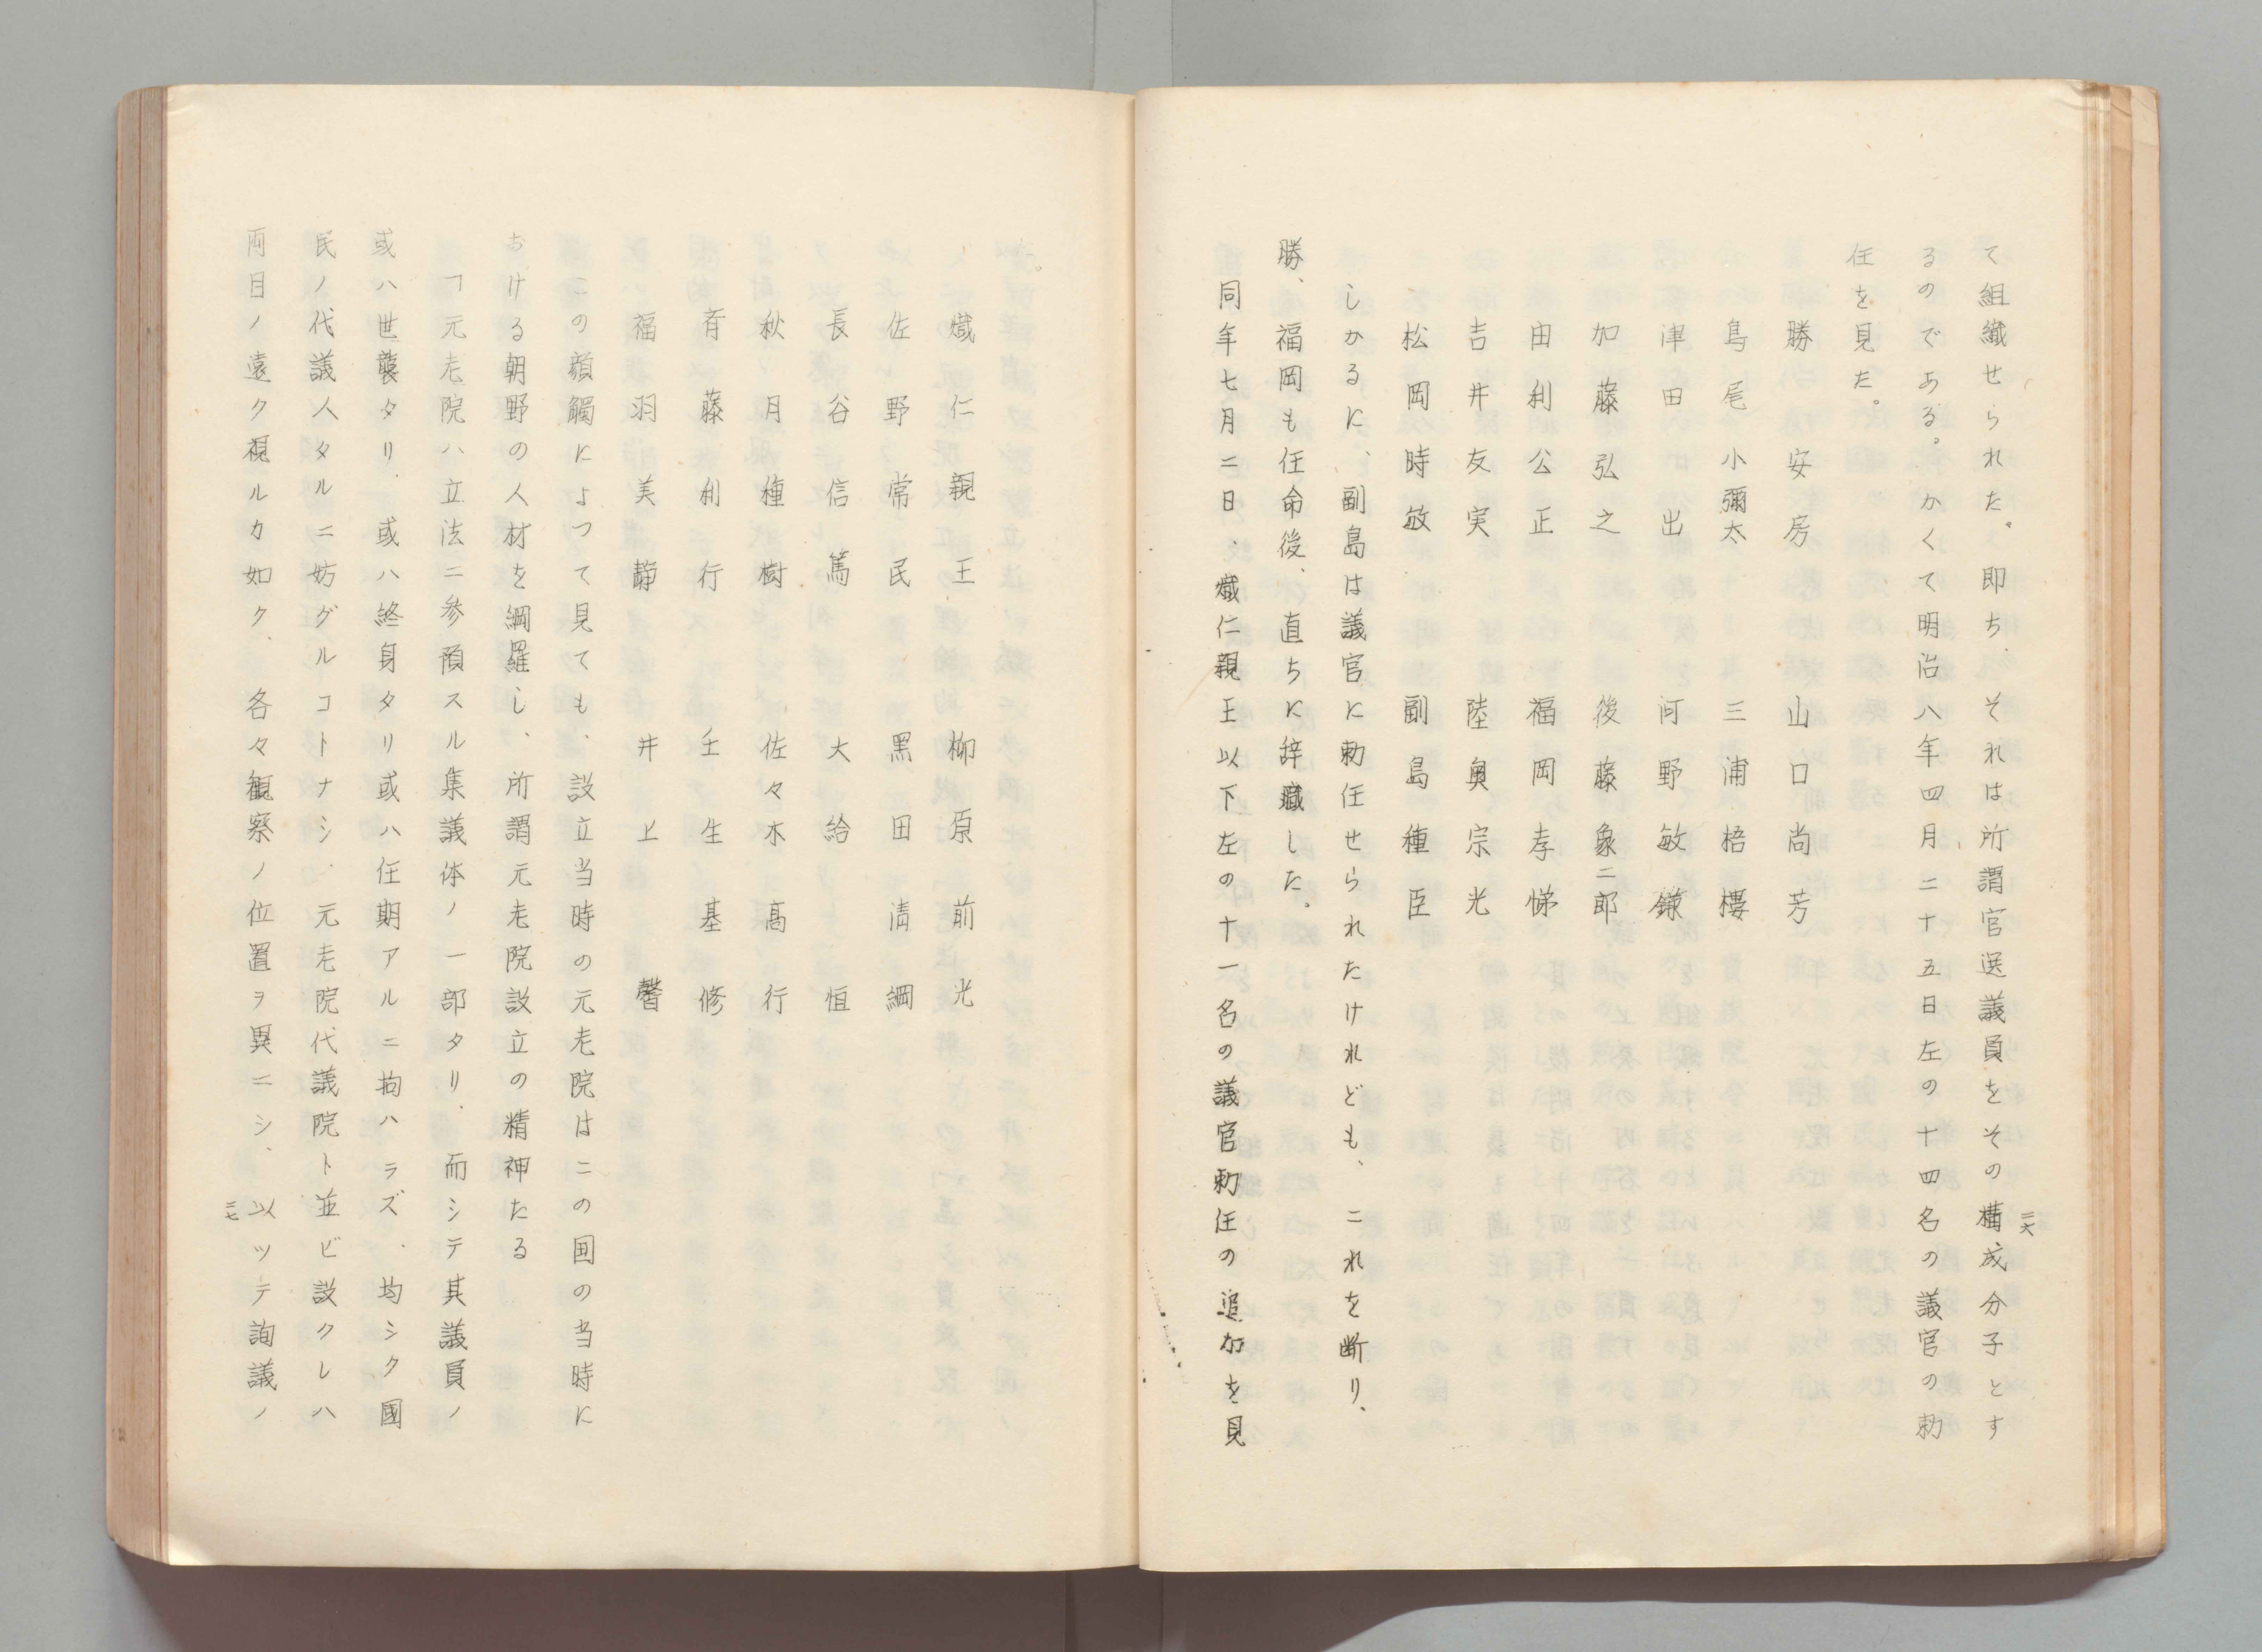 て組織せられた。即ち、それは所謂官選議員をその構成分子とす
るのである。かくて明治八年四月二十五日左の十四名の議官の勅
任を見た。
勝安房　山口尚芳
鳥尾小彌太　三浦梧樓
津田出　河野敏鎌
加藤弘之　後藤象二郎
由利公正　福岡孝悌
吉井友実　陸奥宗光
松岡時敏　副島種臣
しかるに、副島は議官に勅任せられたけれども、これを断り、
勝、福岡も任命後、直ちに辞職した。
同年七月二日、熾仁親王以下左の十一名の議官勅任の追加を見
二六
た。
熾仁親王　柳原前光
佐野常民　黒田清綱
長谷信篤　大給恒
秋月種樹　佐々木高行
斉藤利行　壬生基修
福羽美静　井上馨
この顔觸によつて見ても、設立当時の元老院はこの国の当時に
おける朝野の人材を綱羅し、所謂元老院設立の精神たる
「元老院ハ立法ニ参預スル集議体ノ一部タリ、而シテ其議員ノ
或ハ世襲タリ、或ハ終身タリ或ハ任期アルニ拘ハラズ、均シク國
民ノ代議人タルニ妨グルコトナシ、元老院代議院ト並ビ設クレハ
両目ノ遠ク視ルカ如ク、各々観察ノ位置ヲ異ニシ、以ツテ詢議ノ
二七